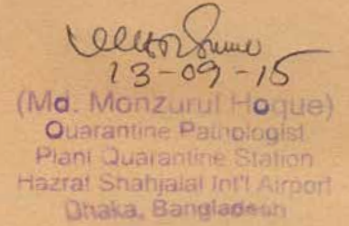 13-09-15
(Md. Monzurul Hoque)
Quarantine Pathologist
Plant Quarantine Station
Hazrat Shahjalal Int'l Airport
Dhaka, Bangladesh